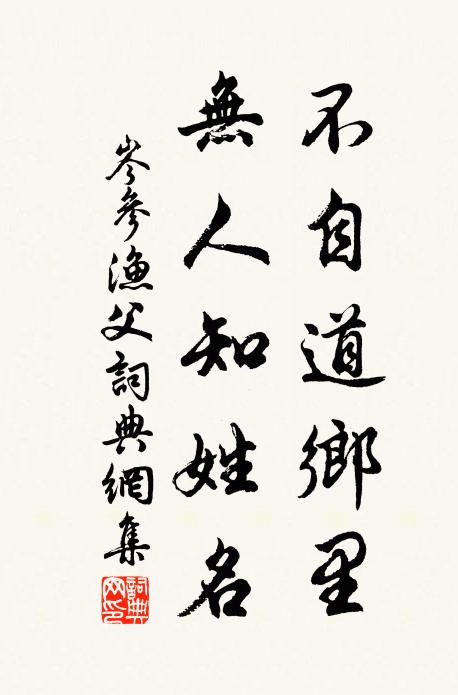 不自道鄉里
無人知姓名
岑參漁父詞典網集
詞典網印